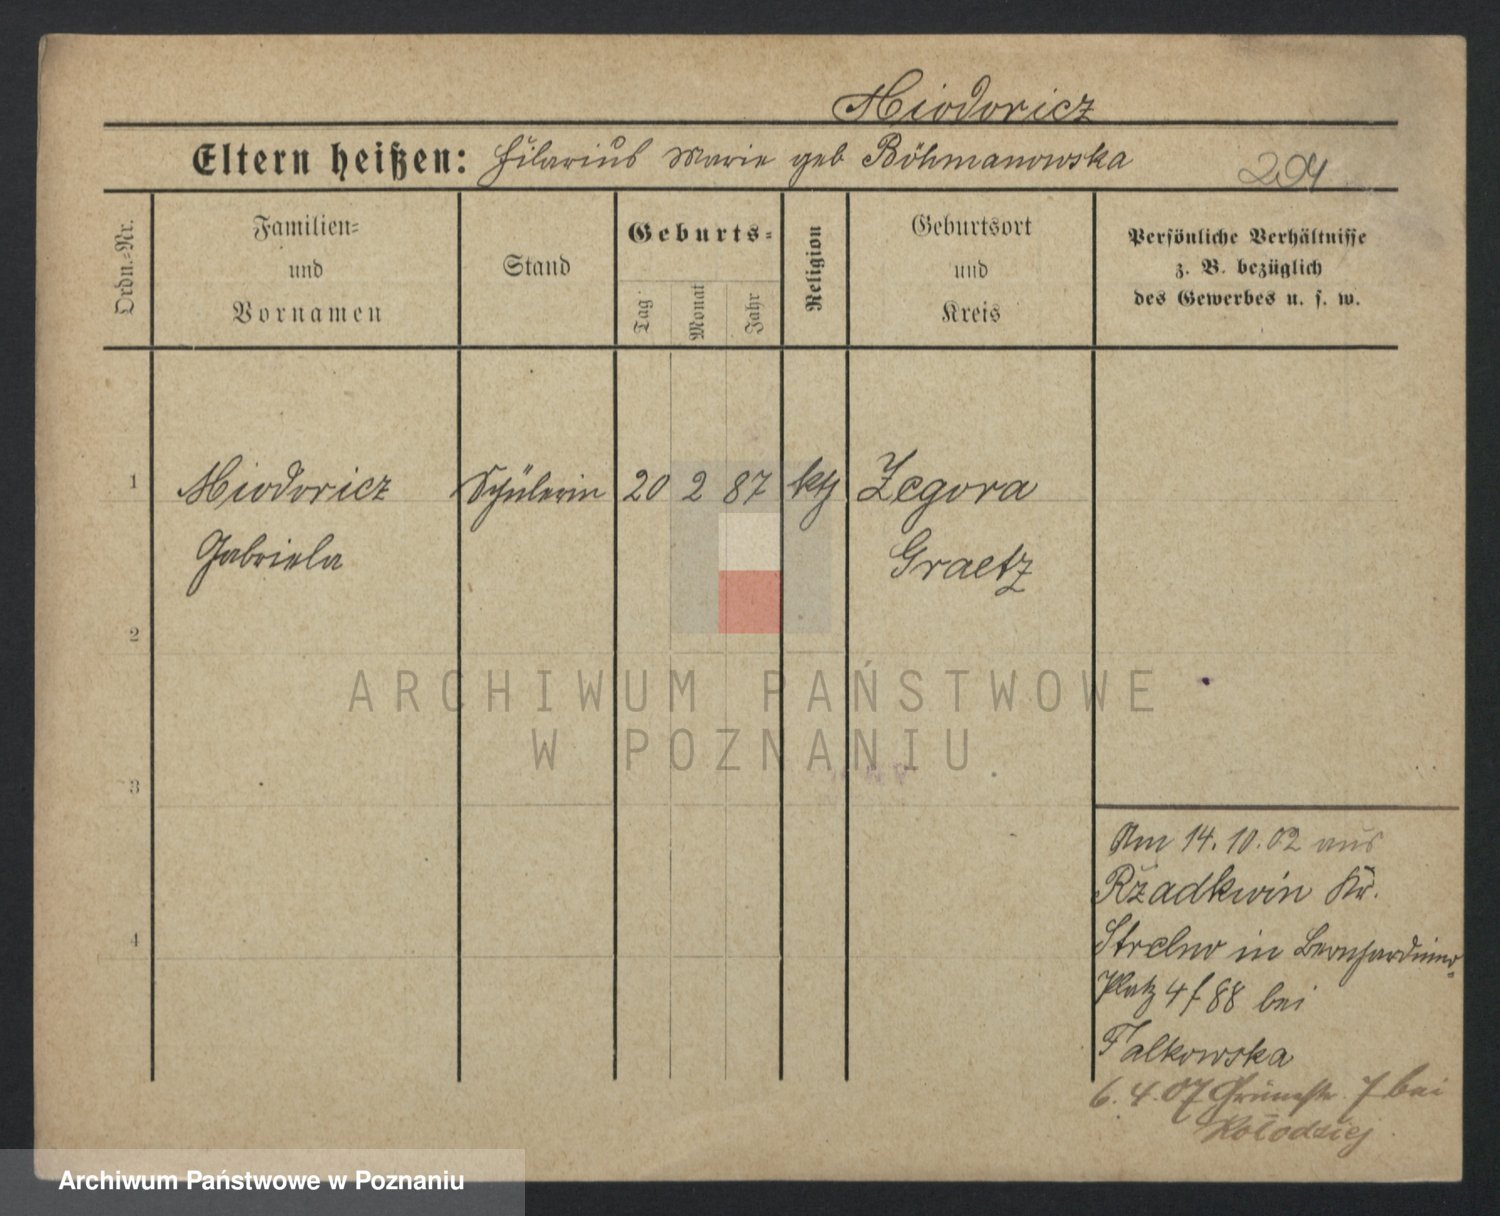 Miodoricz
Eltern heißen: Hilarius Marie geb Böhmanowska 204
Ordn.-Nr.
Familien-
und
Vornamen
Stand
Geburts-
Tag
Monat
Jahr
Religion
Geburtsort
und
Kreis
Persönliche Verhältnisse
z. B. bezüglich
des Gewerbes u. s. w.
1 Miodoricz Schülerin 20 2 87 kth Zegora
Gabriela Graetz
2
ARCHIWUM PAŃSTWOWE
W POZNANIU
3
Am 14.10.02 aus
Rzadkwin Kr.
Strelno in Bernhardiner-
4
Platz 4 f 88 bei
Falkowska
6.4.07 Grünestr. 7 bei
Kołodziej
Archiwum Państwowe w Poznaniu